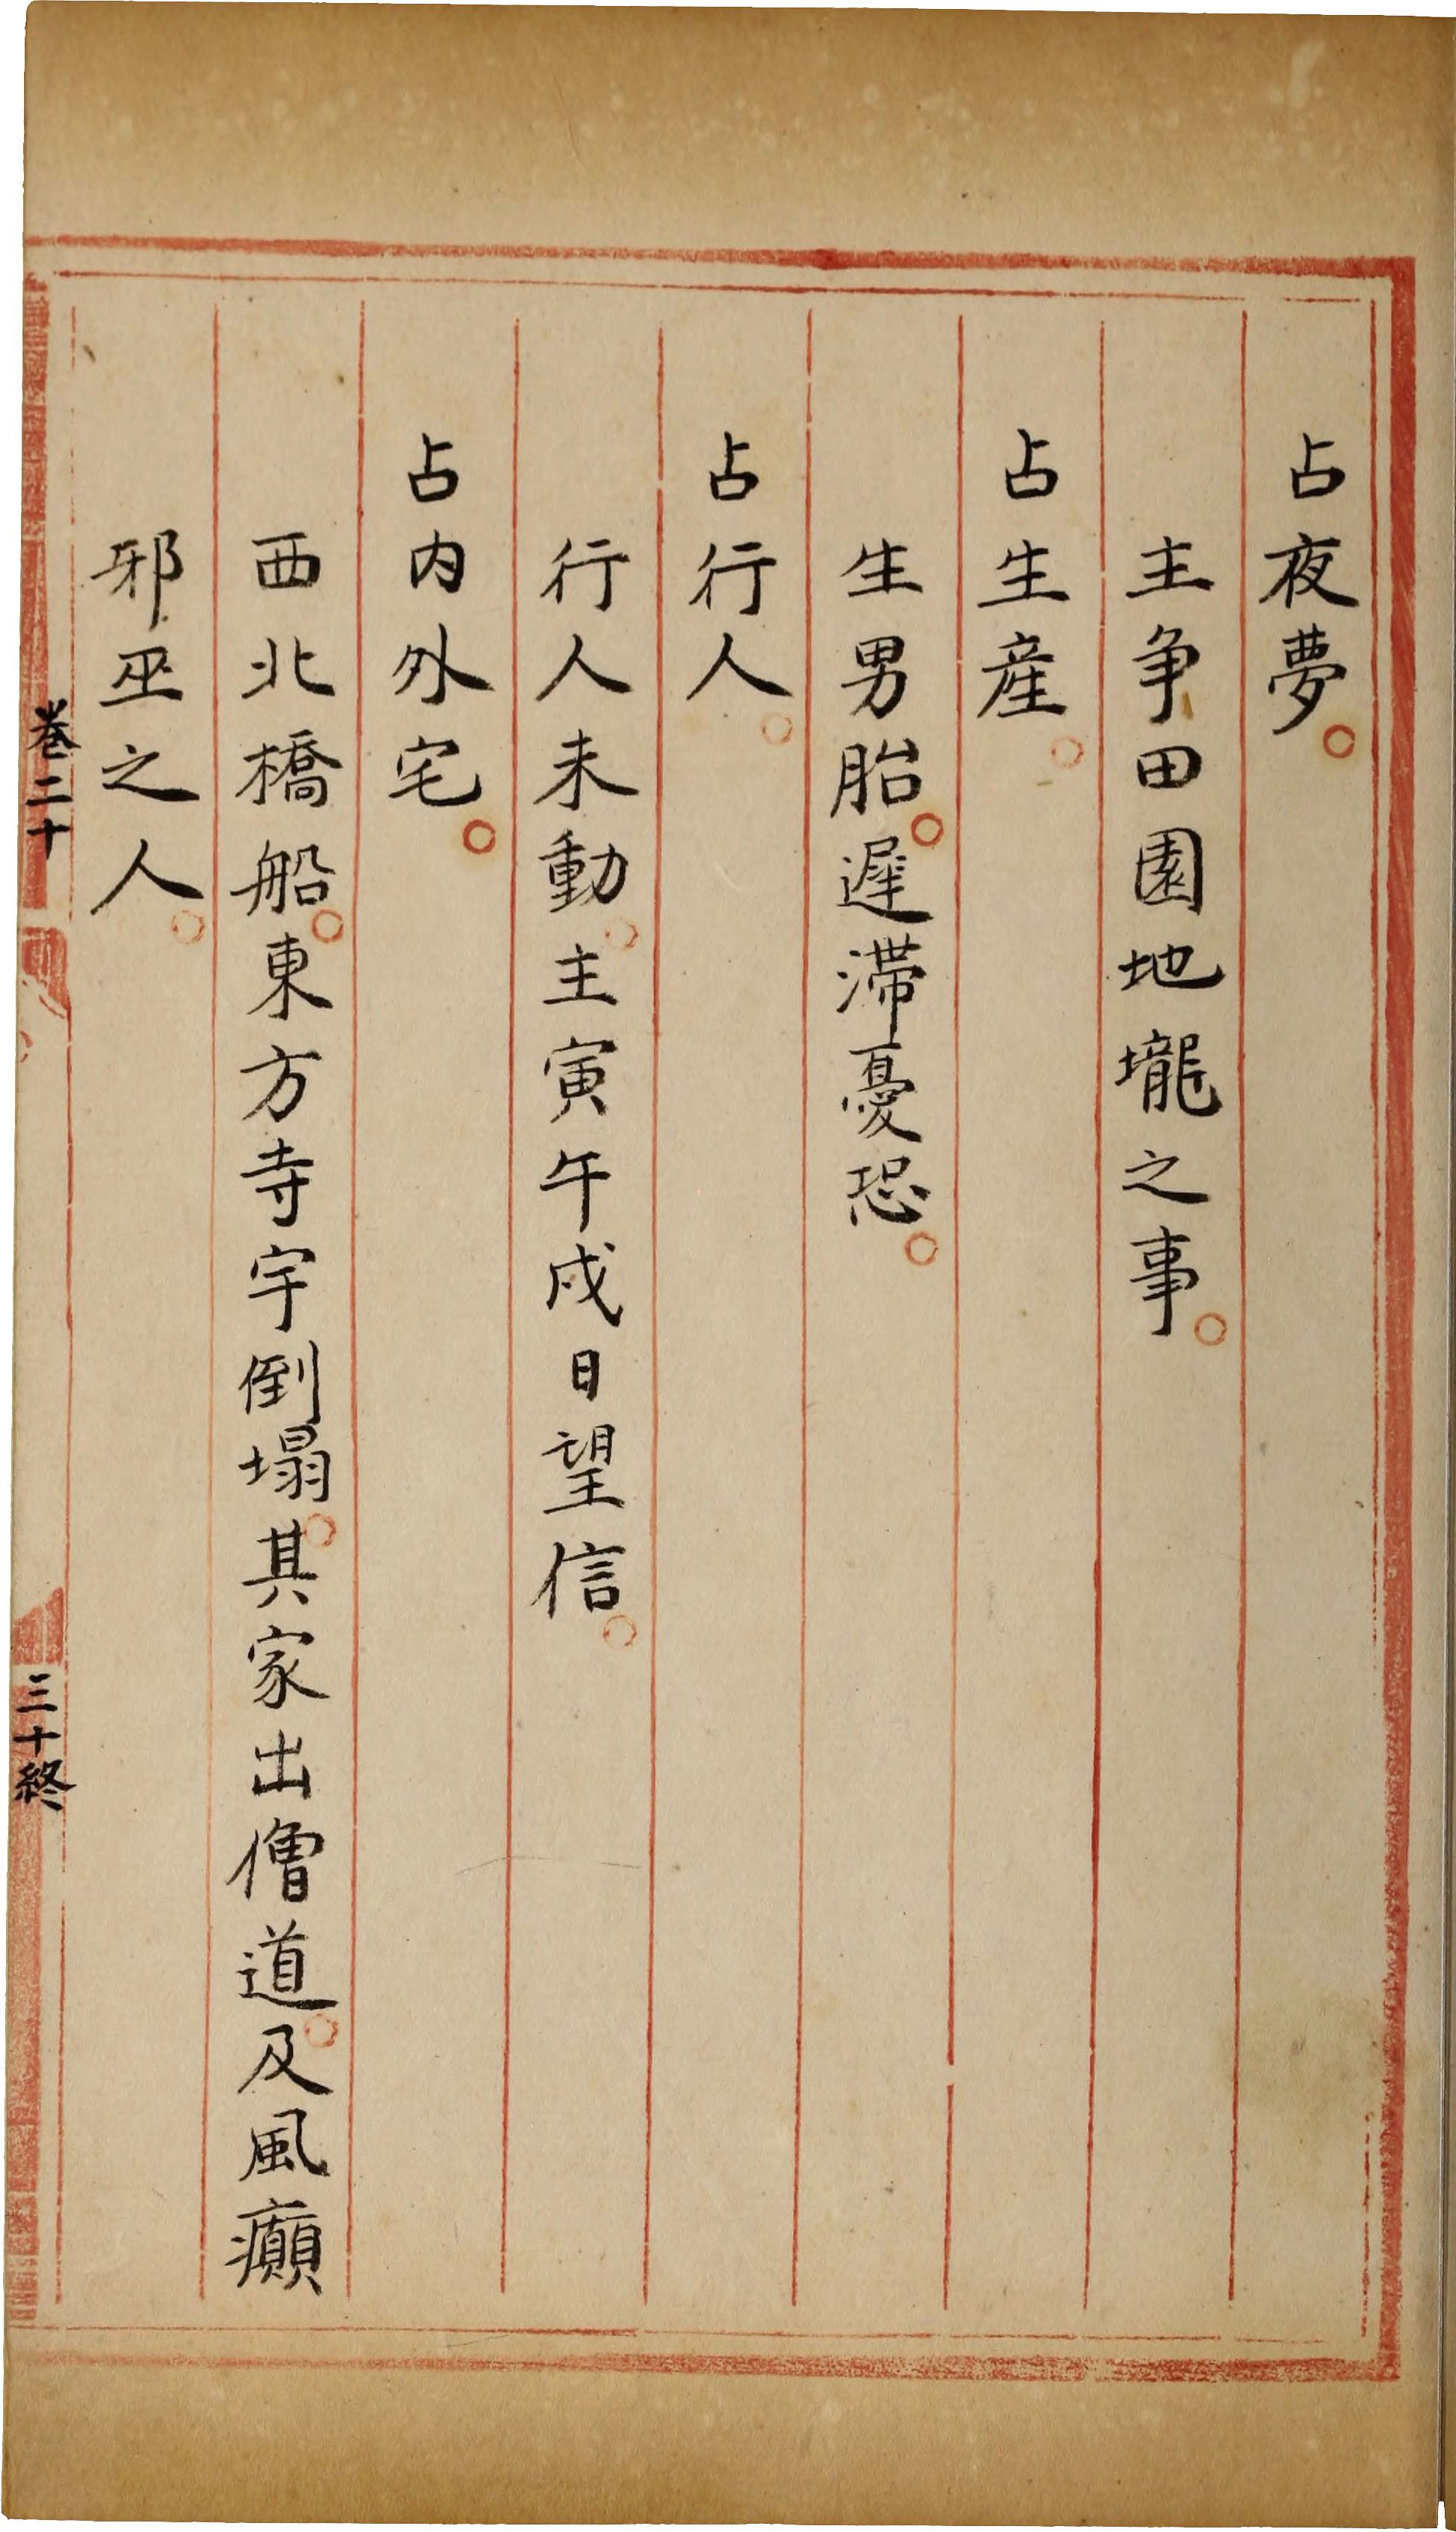 占夜夢。
主争田園地壠之事。
占生産。
生男胎。遲滯憂恐。
占行人。
行人未動。主寅午戌日望信。
占内外宅。
西北橋船。東方寺宇倒塌。其家出僧道。及風癲
邪巫之人。
卷二十
三十終